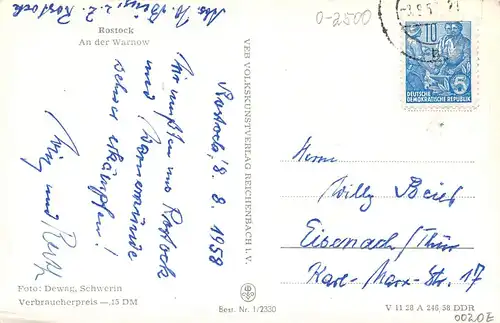 Abs. W. z. Z. Rostock
Rostock
An der Warnow
Rostock, 8. 8. 1958
Wir mußten uns Rostock
und Warnemünde
schwer erkämpfen!
und
Foto: Dewag, Schwerin
Verbraucherpreis —,15 DM
Best. Nr. 1/2330
VEB VOLKSKUNSTVERLAG REICHENBACH i. V.
0-2500
10
DEUTSCHE
DEMOKRATISCHE REPUBLIK
5
Herrn
Willy Beier
Eisenach/Thür
Karl-Marx-Str. 17
V 11 28 A 246 58 DDR
0020E